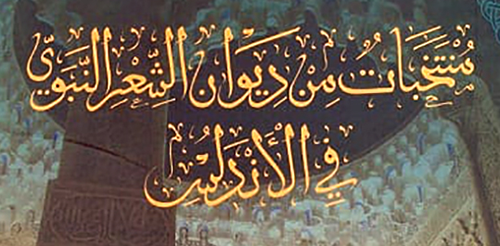 مُنتَخَبَاتٌ مِن دِيوَان الشِّعْرِ النَّبَوِيِّ
فِي الأَنْدَلُسِ